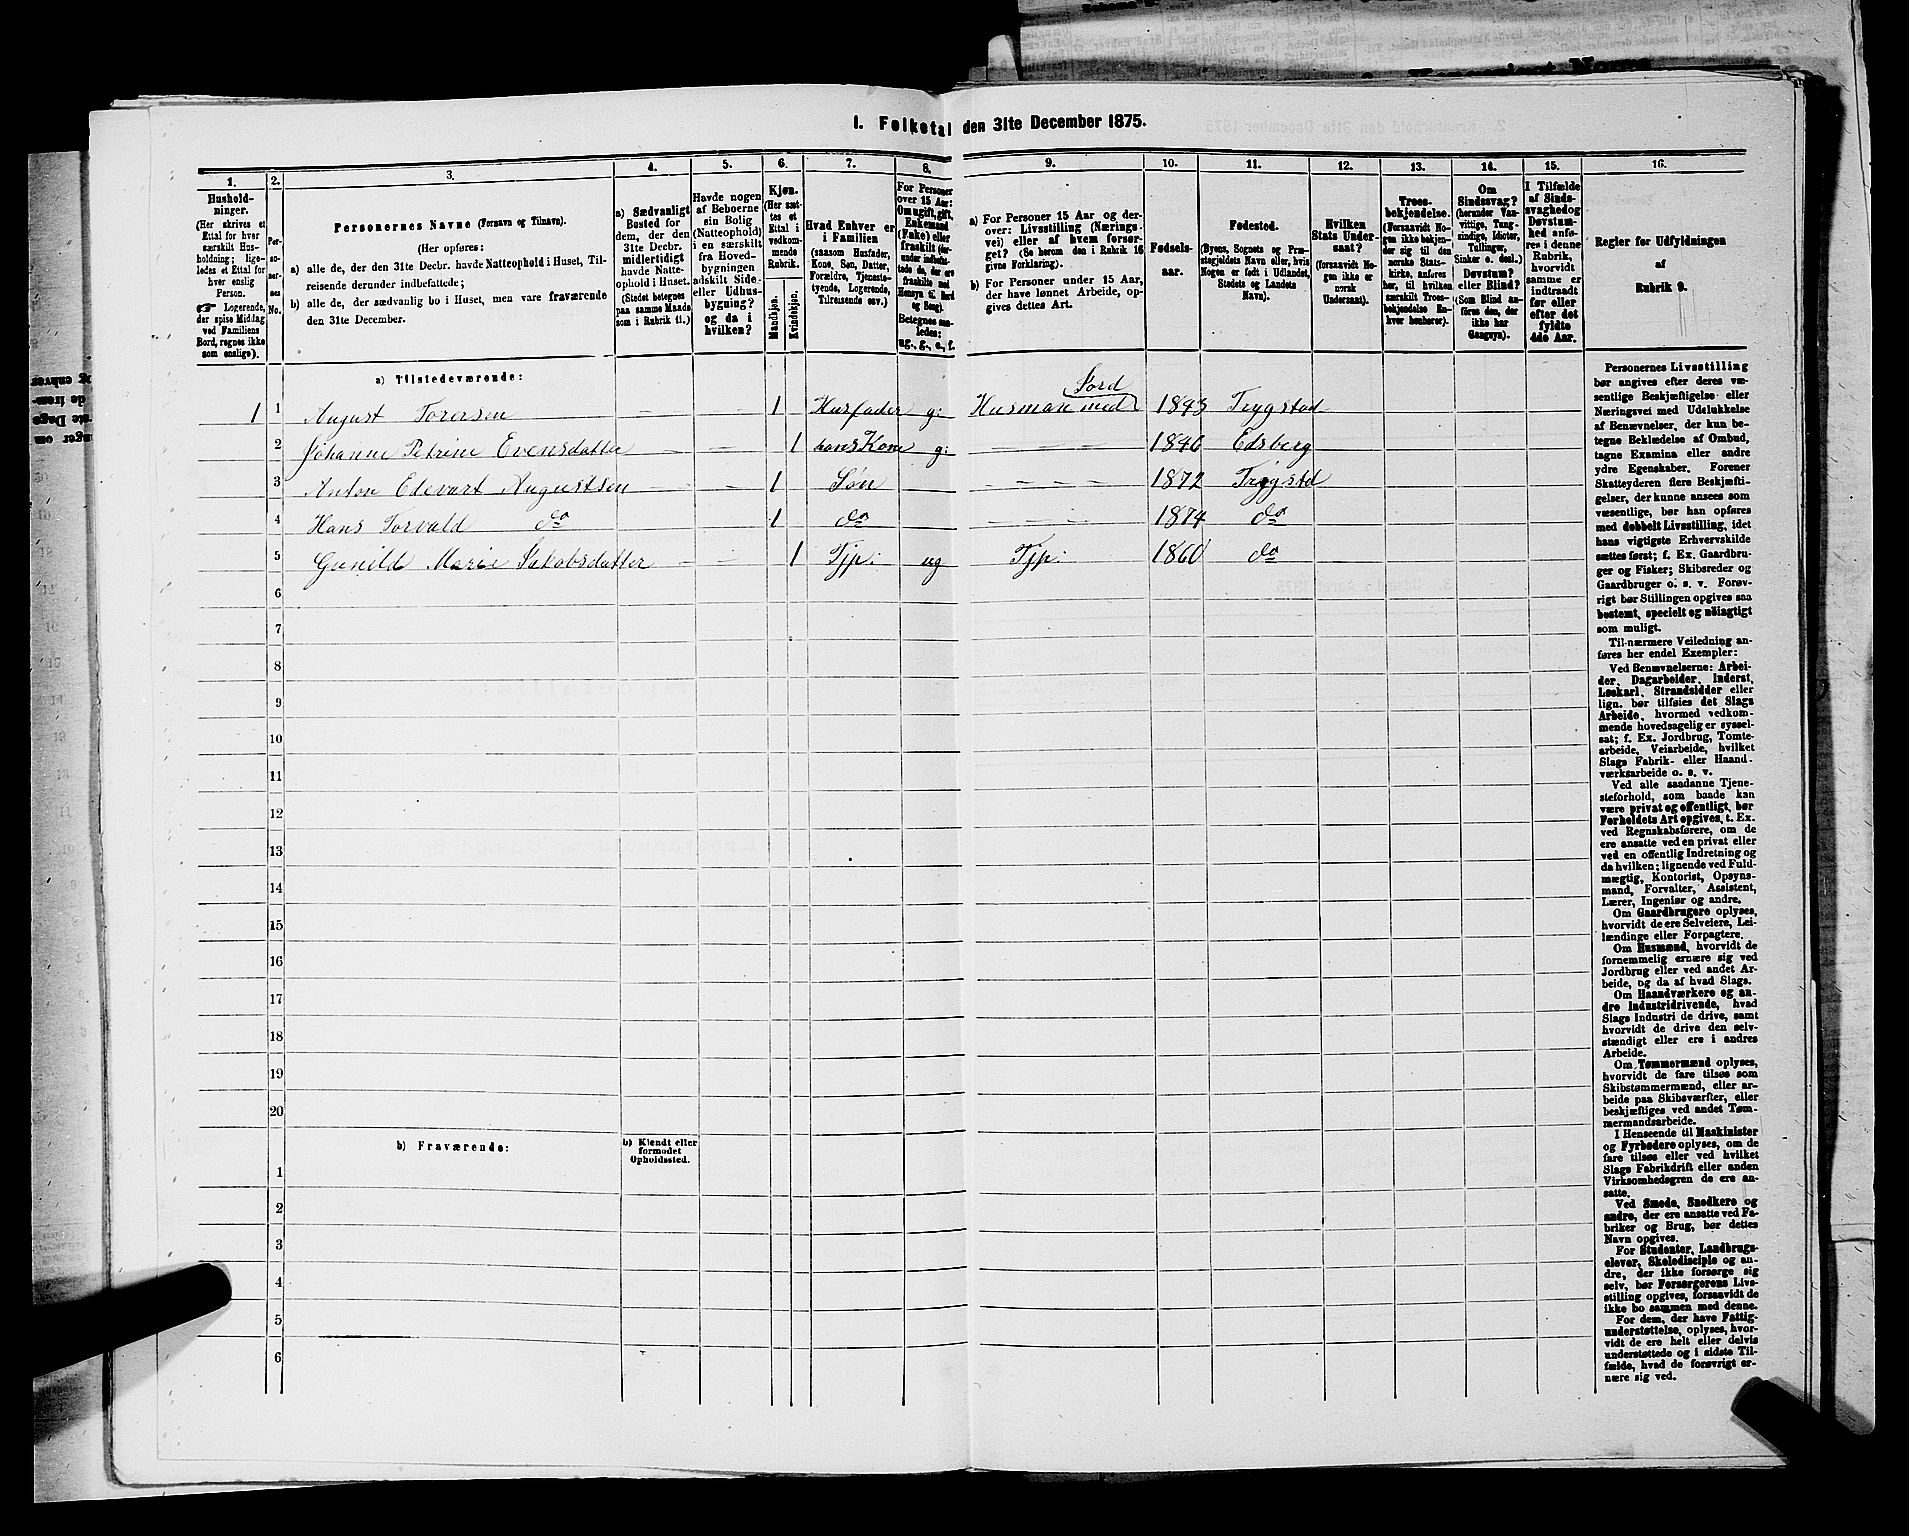 I. Folketal den 31te December 1875.
1. 2. 3. 4. 5. 6. 7. 8. 9. 10. 11. 12. 13. 14. 15. 16.
Hushold-
ninger.
(Her skrives et
Ettal for hver
særskilt Hus-
holdning; lige-
ledes et Ettal for
hver enslig
Person.
☞ Logerende,
der spise Middag
ved Familiens
Bord, regnes ikke
som enslige).
Per-
so-
ner-
nes
No.
Personernes Navne (Fornavn og Tilnavn).
(Her opføres:
a) alle de, der den 31te Decbr. havde Natteophold i Huset, Til-
reisende derunder indbefattede;
b) alle de, der sædvanlig bo i Huset, men vare fraværende
den 31te December.
a) Sædvanligt
Bosted for
dem, der den
31te Decbr.
midlertidigt
havde Natte-
ophold i Huset.
(Stedet betegnes
paa samme Maade
som i Rubrik 11.)
Havde nogen
af Beboerne
sin Bolig
(Natteophold)
i en særskilt
fra Hoved-
bygningen
adskilt Side-
eller Udhus-
bygning?
og da i
hvilken?
Kjøn.
(Her sæt-
tes et
Ettal i
vedkom-
mende
Rubrik.
Mandkjøn.
Kvindekjøn.
Hvad Enhver er
i Familien
(saasom Husfader,
Kone, Søn, Datter,
Forældre, Tjeneste-
tyende, Logerende,
Tilreisende osv.)
For Personer
over 15 Aar:
Om ugift, gift,
Enkemand
(Enke) eller
fraskilt (der-
under indbefat-
tede de, der ere
fraskilte med
Hensyn til Bord
og Seng).
Betegnes saa-
ledes:
ug., g., e., f.
a) For Personer 15 Aar og der-
over: Livsstilling (Nærings-
vei) eller af hvem forsør-
get? (Se herom den i Rubrik 16
givne Forklaring).
b) For Personer under 15 Aar,
der have lønnet Arbeide, op-
gives dettes Art.
Fødsels-
aar.
Fødested.
(Byens, Sognets og Præ-
stegjeldets Navn eller, hvis
Nogen er født i Udlandet,
Stedets og Landets
Navn).
Hvilken
Stats Under-
saat?
(forsaavidt No-
gen ikke er
norsk
Undersaat).
Troes-
bekjendelse.
(Forsaavidt No-
gen ikke bekjen-
der sig til den
norske Stats-
kirke, anføres
her, til hvilken
særskilt Troes-
bekjendelse En-
hver henhører).
Om
Sindssvag?
(herunder Van-
vittige, Tung-
sindige, Idioter,
Tullinger,
Sinker o. desl.)
Døvstum?
eller Blind?
(Som Blind an-
føres den, der
ikke har
Gangsyn).
I Tilfælde
af Sinds-
svaghed og
Døvstum-
hed anfø-
res i denne
Rubrik,
hvorvidt
samme er
indtraadt
før eller
efter det
fyldte
4de Aar.
Regler for Udfyldningen
af
Rubrik 9.
a) Tilstedeværende:
1 1 August Torersen — — 1 Husfader g: Husman med Jord 1843 Trygstad
2 Johanne Petrine Evensdatter — — 1 hans Kone g: — — — 1846 Edsberg
3 Anton Edevart Augustsen — — 1 Søn — — — 1872 Trygstd
4 Hans Torvald do 1 do — — 1874 do
5 Gunild Marie Jakobsdatter — — 1 Tjp: ug Tjp: 1860 do
6
7
8
9
10
11
12
13
14
15
16
17
18
19
20
b) Fraværende:
b) Kjendt eller
formodet
Opholdssted.
1
2
3
4
5
6
Personernes Livsstilling
bør angives efter deres væ-
sentlige Beskjæftigelse eller
Næringsvei med Udelukkelse
af Benævnelser, der kun be-
tegne Beklædelse af Ombud,
tagne Examina eller andre
ydre Egenskaber. Forener
Skatteyderen flere Beskjæfti-
gelser, der kunne ansees som
væsentlige, bør han opføres
med dobbelt Livsstilling, idet
hans vigtigste Erhvervskilde
sættes først; f. Ex. Gaardbru-
ger og Fisker; Skibsreder og
Gaardbruger o. s. v. Forøv-
rigt bør Stillingen opgives saa
bestemt, specielt og nøiagtigt
som muligt.
Til nærmere Veiledning an-
føres her endel Exempler:
Ved Benævnelserne: Arbei-
der, Dagarbeider, Inderst,
Løskarl, Strandsidder eller
lign. bør tilføies det Slags
Arbeide, hvormed vedkom-
mende hovedsagelig er syssel-
sat; f. Ex. Jordbrug, Tomte-
arbeide, Veiarbeide, hvilket
Slags Fabrik- eller Haand-
værksarbeide o. s. v.
Ved alle saadanne Tjene-
steforhold, som baade kan
være privat og offentligt, bør
Forholdets Art opgives, t. Ex.
ved Regnskabsførere, om de
ere ansatte ved en privat eller
ved en offentlig Indretning og
da hvilken; lignende ved Fuld-
mægtig, Kontorist, Opsyns-
mand, Forvalter, Assistent,
Lærer, Ingeniør og andre.
Om Gaardbrugere oplyses,
hvorvidt de ere Selveiere, Lei-
lændinge eller Forpagtere.
Om Husmænd, hvorvidt de
fornemmelig ernære sig ved
Jordbrug eller ved andet Ar-
beide, og da af hvad Slags.
Om Haandværkere og an-
dre Industridrivende, hvad
Slags Industri de drive, samt
hvorvidt de drive den selv-
stændigt eller ere i andres
Arbeide.
Om Tømmermænd oplyses,
hvorvidt de fare tilsøs som
Skibstømmermænd, eller ar-
beide paa Skibsværfter, eller
beskjæftiges ved andet Tøm-
mermandsarbeide.
I Henseende til Maskinister
og Fyrbødere oplyses, om de
fare tilsøs eller ved hvilket
Slags Fabrikdrift eller anden
Virksomhedsgren de ere an-
satte.
Ved Smede, Snedkere og
andre, der ere ansatte ved Fa-
briker og Brug, bør dettes
Navn opgives.
For Studenter, Landbrugs-
elever, Skoledisciple og an-
dre, der ikke forsørge sig
selv, bør Forsørgerens Livs-
stilling opgives, forsaavidt de
ikke bo sammen med denne.
For dem, der have Fattig-
understøttelse, oplyses, hvor-
vidt de ere helt eller delvis
understøttede og i sidste Til-
fælde, hvad de forøvrigt er-
nære sig ved.